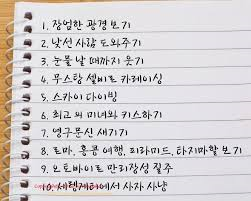 1. 장엄한 광경 보기
2. 낯선 사람 도와주기
3. 눈물 날 때까지 웃기
4. 무스탕 셀비로 카레이싱
5. 스카이 다이빙
6. 최고의 미녀와 키스하기
7. 영구문신 새기기
8. 로마, 홍콩 여행, 피라미드, 타지마할 보기
9. 오토바이로 만리장성 질주
10. 세렝게티에서 사자 사냥